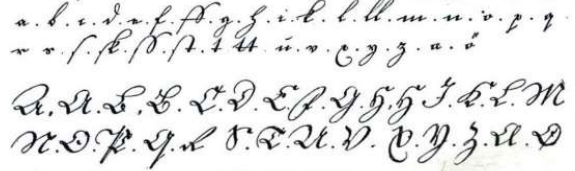 a. b. c. d. e. f. ff. g. h. i. k. l. ll. m. n. o. p. q.
r r. ſ. ſk. ſſ. ſt. t tt. u. v. x. y. z. a. ö
A. A. B. B. C. D. E. F. G. H. H I K. L. M
N. O. P. Q. R S. T. U. V. X. Y. Z. A. O